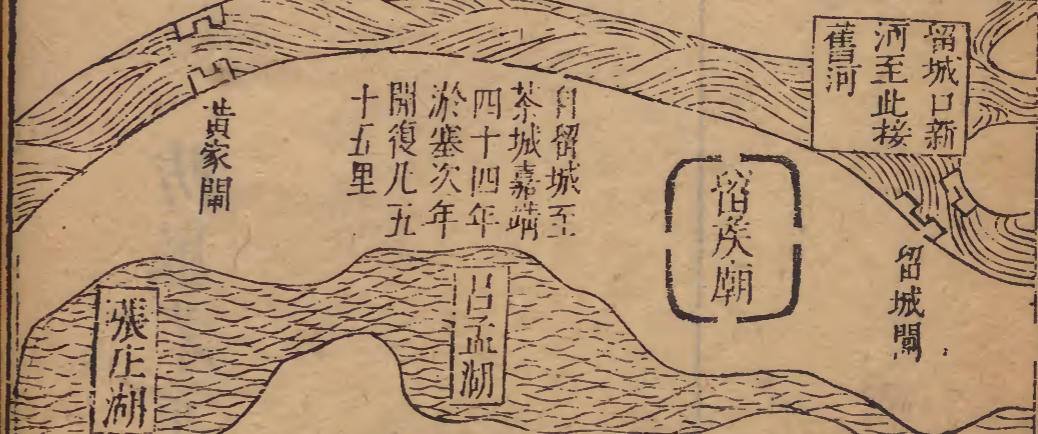 留城口新
河至此接
舊河
留城閘
留矦廟
自留城至
茶城嘉靖
四十四年
淤塞次年
開復凡五
十五里
呂孟湖
黃家閘
張庄湖